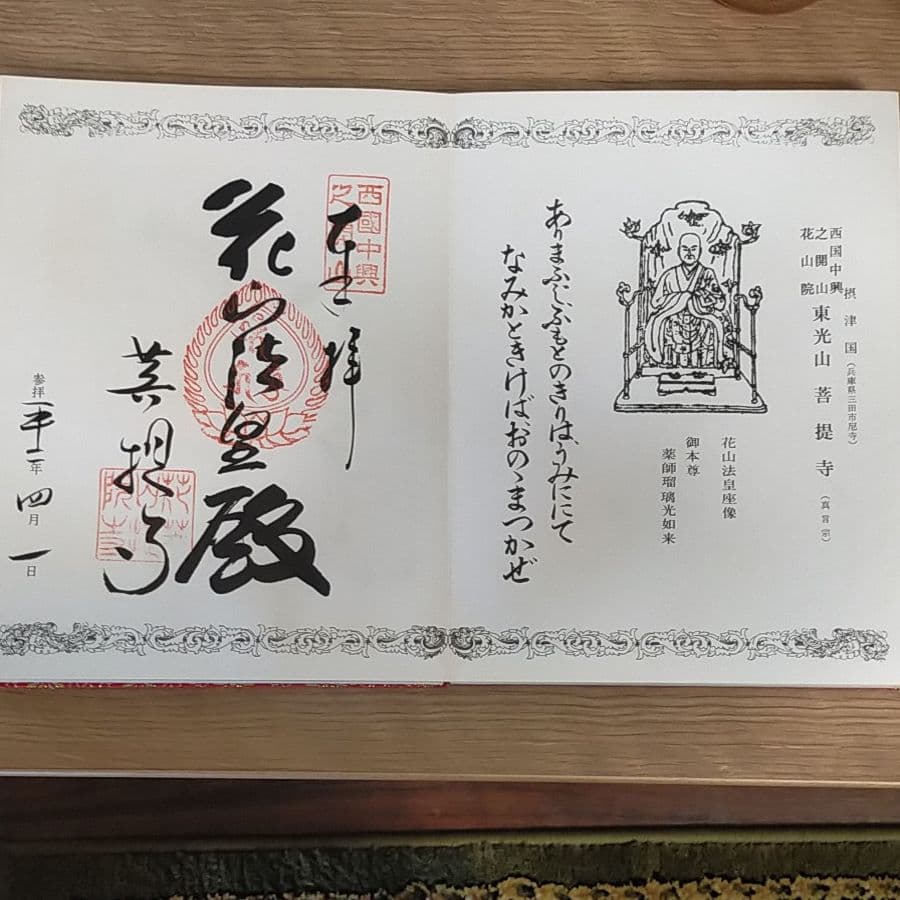 摂津国（兵庫県三田市尼寺）
西国中興
之開山
花山院
東光山 菩提寺（真言宗）
花山法皇座像
御本尊
薬師瑠璃光如来
ありまふじふもとのきりは、うみににて
なみかときけば、おのゝまつかぜ
西國中興之開山
奉拝
花山法皇殿
菩提寺
参拝 年 四月 一日